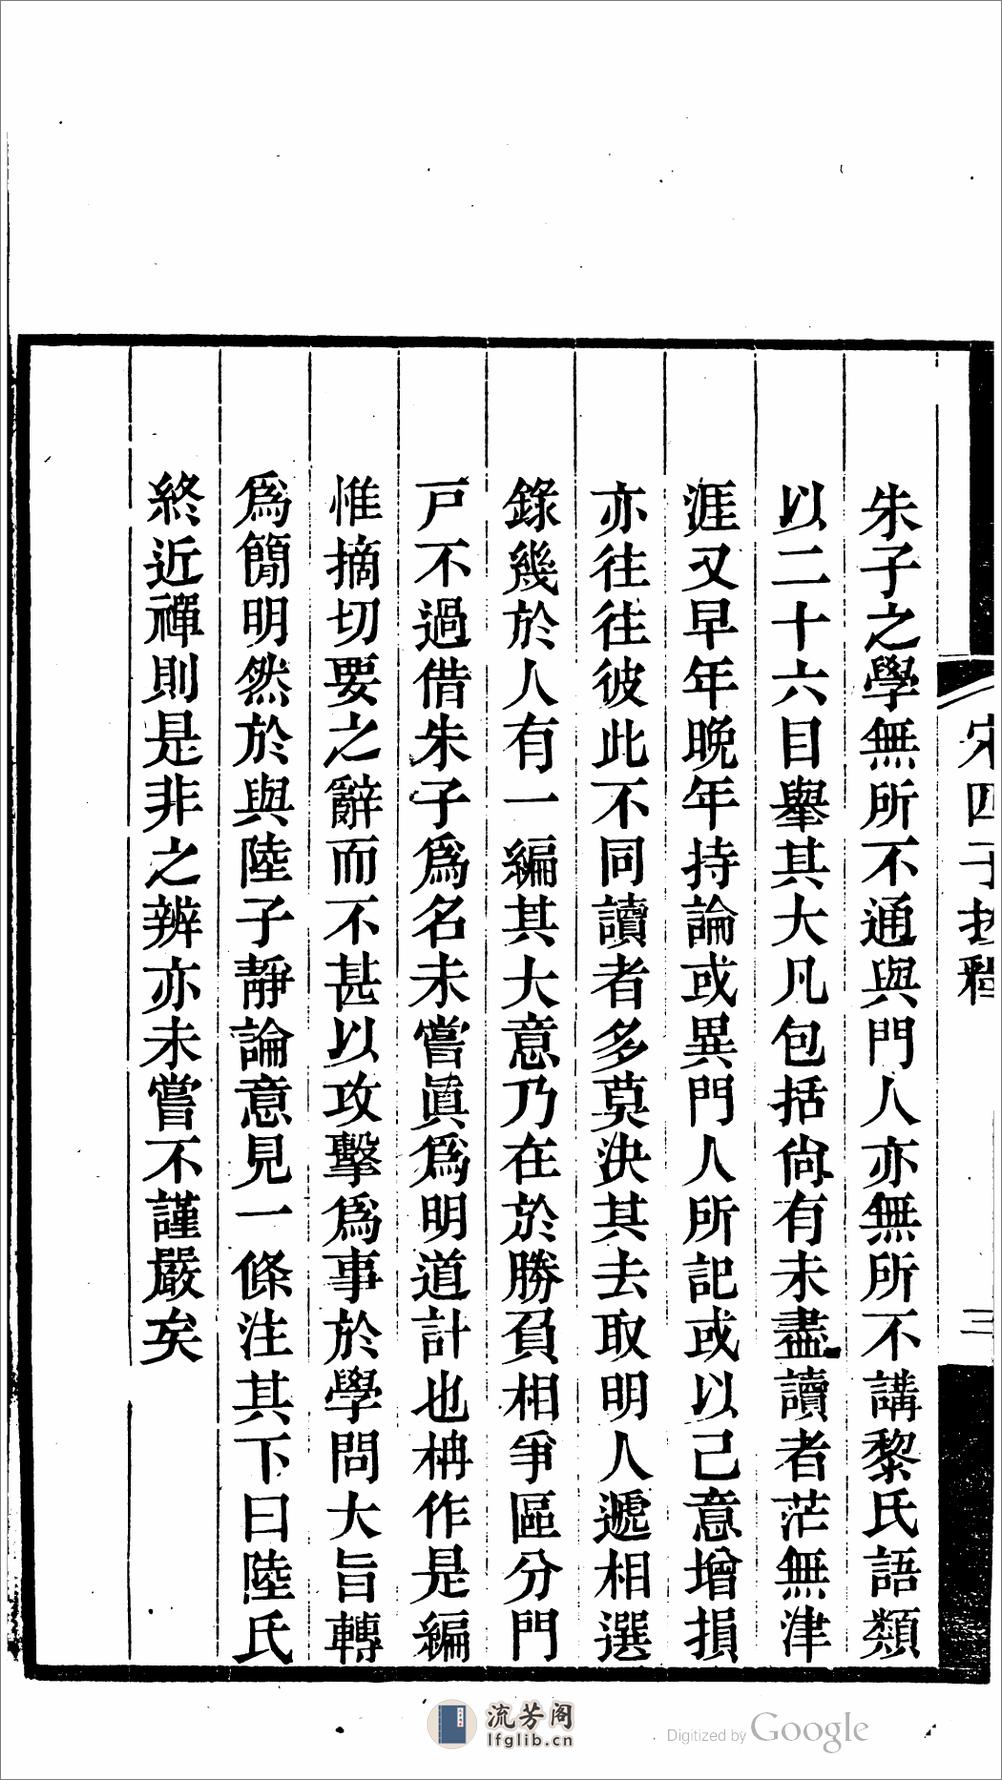 朱子之學無所不通與門人亦無所不講黎氏語類
以二十六目舉其大凡包括尙有未盡讀者茫無津
涯又早年晚年持論或異門人所記或以己意增損
亦往往彼此不同讀者多莫決其去取明人遞相選
錄幾於人有一編其大意乃在於勝負相爭區分門
戸不過借朱子爲名未嘗眞爲明道計也柟作是編
惟摘切要之辭而不甚以攻擊爲事於學問大旨轉
爲簡明然於與陸子靜論意見一條注其下曰陸氏
終近禪則是非之辨亦未嘗不謹嚴矣
宋四子抄釋
三
流芳阁
lfglib.cn
Digitized by Google